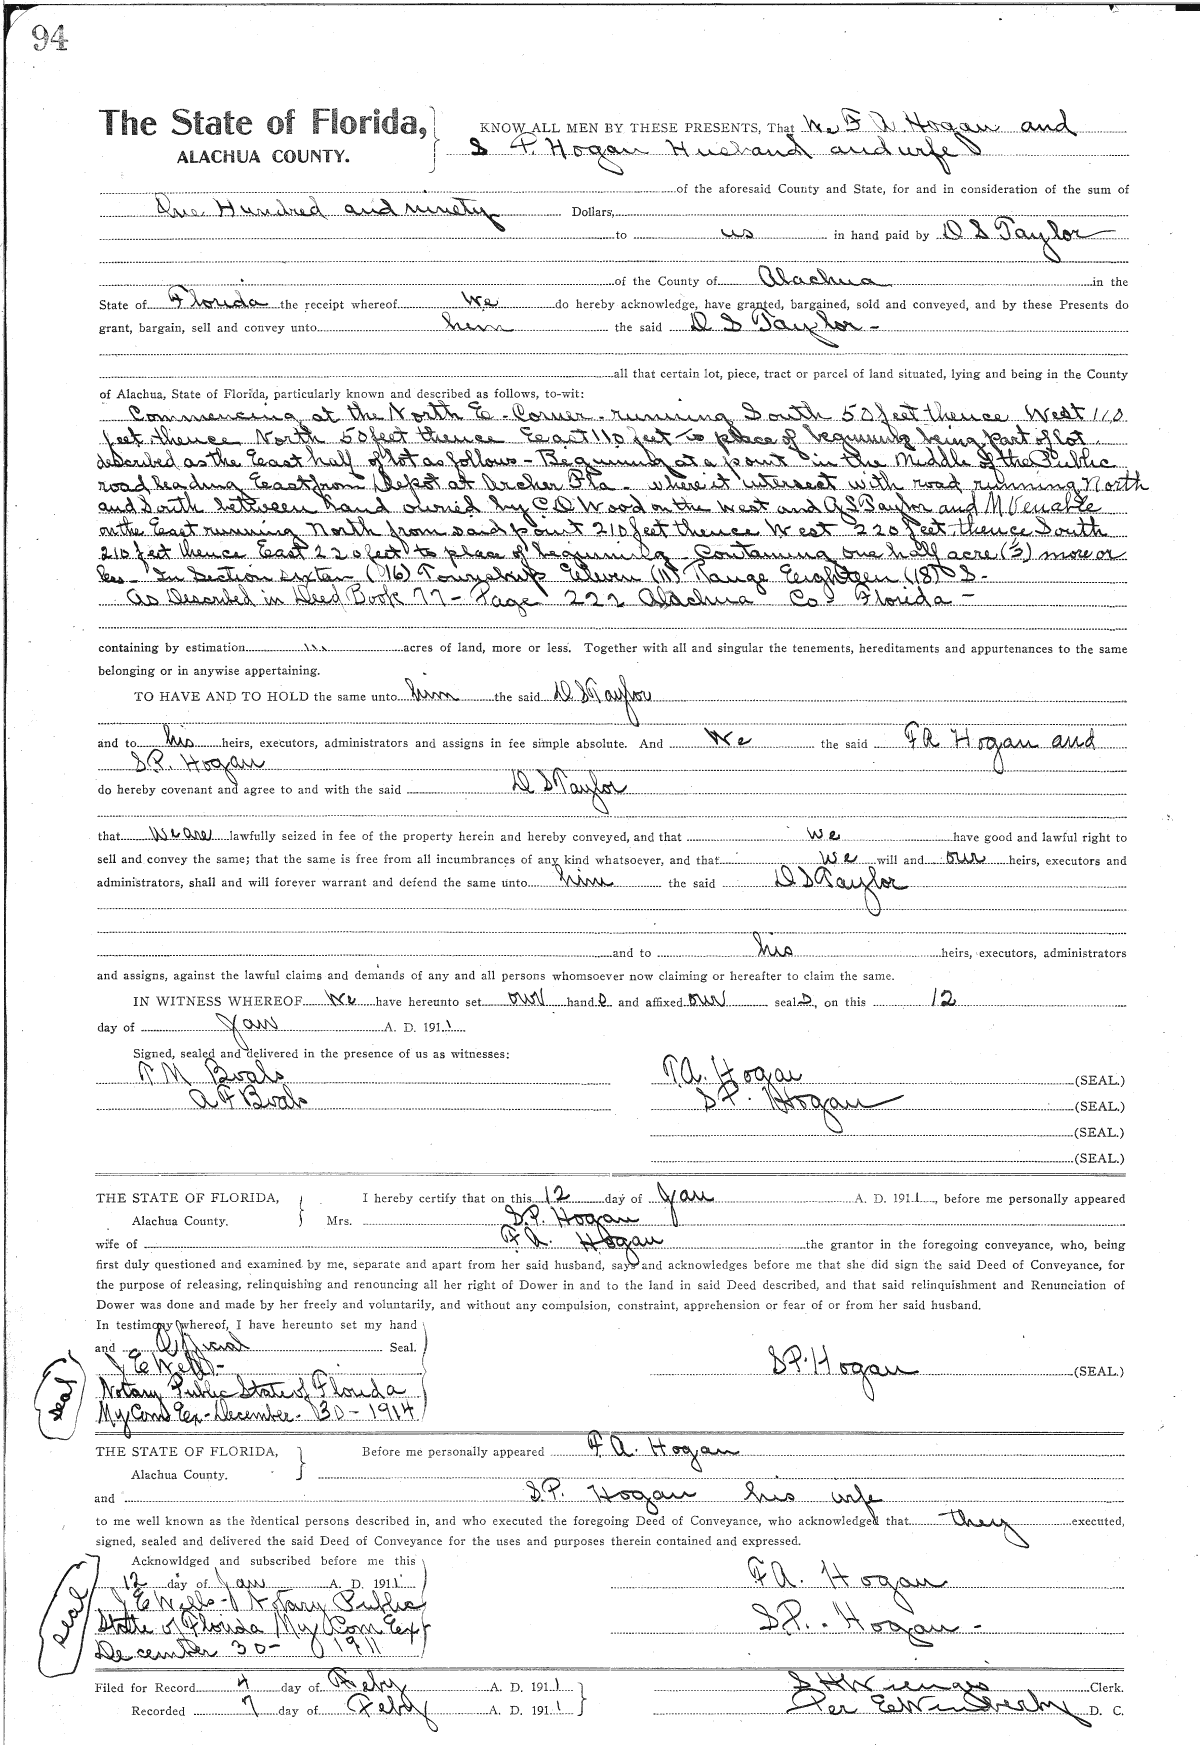 94
The State of Florida,
ALACHUA COUNTY.
KNOW ALL MEN BY THESE PRESENTS, That We F A Hogan and
S P. Hogan Husband and wife
of the aforesaid County and State, for and in consideration of the sum of
One Hundred and ninety Dollars,
to us in hand paid by D S Taylor
of the County of Alachua in the
State of Florida the receipt whereof We do hereby acknowledge, have granted, bargained, sold and conveyed, and by these Presents do
grant, bargain, sell and convey unto him the said D S Taylor -
all that certain lot, piece, tract or parcel of land situated, lying and being in the County
of Alachua, State of Florida, particularly known and described as follows, to-wit:
Commencing at the North E - Corner - running South 50 feet thence West 110
feet thence North 50 feet thence East 110 feet to place of beginning being part of lot
described as the East half of lot as follows - Beginning at a point in the Middle of the Public
road leading East from Depot at Archer Fla - where it intersect with road running North
and South between land owned by C D Wood on the West and S Taylor and M Venable
on the East running North from said point 210 feet thence West 220 feet thence South
210 feet thence East 220 feet to place of beginning - Containing one half acre (½) more or
less - In Section sixteen (16) Township Eleven (11) Range Eighteen (18) S -
As Described in Deed Book 77 - Page 222 Alachua Co Florida -
containing by estimation acres of land, more or less. Together with all and singular the tenements, hereditaments and appurtenances to the same
belonging or in anywise appertaining.
TO HAVE AND TO HOLD the same unto him the said D S Taylor
and to his heirs, executors, administrators and assigns in fee simple absolute. And We the said F A Hogan and
S.P. Hogan
do hereby covenant and agree to and with the said D S Taylor
that We are lawfully seized in fee of the property herein and hereby conveyed, and that we have good and lawful right to
sell and convey the same; that the same is free from all incumbrances of any kind whatsoever, and that We will and our heirs, executors and
administrators, shall and will forever warrant and defend the same unto him the said D S Taylor
and to his heirs, executors, administrators
and assigns, against the lawful claims and demands of any and all persons whomsoever now claiming or hereafter to claim the same.
IN WITNESS WHEREOF We have hereunto set our hands and affixed our seals, on this 12
day of Jan A. D. 1911
Signed, sealed and delivered in the presence of us as witnesses:
M Boals F.A. Hogan (SEAL.)
A F Boals S P. Hogan (SEAL.)
(SEAL.)
(SEAL.)
THE STATE OF FLORIDA, I hereby certify that on this 12 day of Jan A. D. 1911, before me personally appeared
Alachua County. Mrs. S.P. Hogan
wife of F.A. Hogan the grantor in the foregoing conveyance, who, being
first duly questioned and examined by me, separate and apart from her said husband, says and acknowledges before me that she did sign the said Deed of Conveyance, for
the purpose of releasing, relinquishing and renouncing all her right of Dower in and to the land in said Deed described, and that said relinquishment and Renunciation of
Dower was done and made by her freely and voluntarily, and without any compulsion, constraint, apprehension or fear of or from her said husband.
In testimony whereof, I have hereunto set my hand
and Official Seal.
J E Wells - S.P. Hogan (SEAL.)
seal Notary Public State of Florida
My Com Ex - December - 30 - 1914
THE STATE OF FLORIDA, Before me personally appeared F A. Hogan
Alachua County.
and S.P. Hogan his wife
to me well known as the identical persons described in, and who executed the foregoing Deed of Conveyance, who acknowledged that they executed,
signed, sealed and delivered the said Deed of Conveyance for the uses and purposes therein contained and expressed.
Acknowldged and subscribed before me this
12 day of Jan A. D. 1911 F A. Hogan
J E Wells - Notary Public
seal State of Florida My Com Exp S.P. Hogan -
December 30 - 1911
Filed for Record 4 day of Feby A. D. 1911 S H Wienges Clerk.
Recorded 7 day of Feby A. D. 1911 Per E D. C.